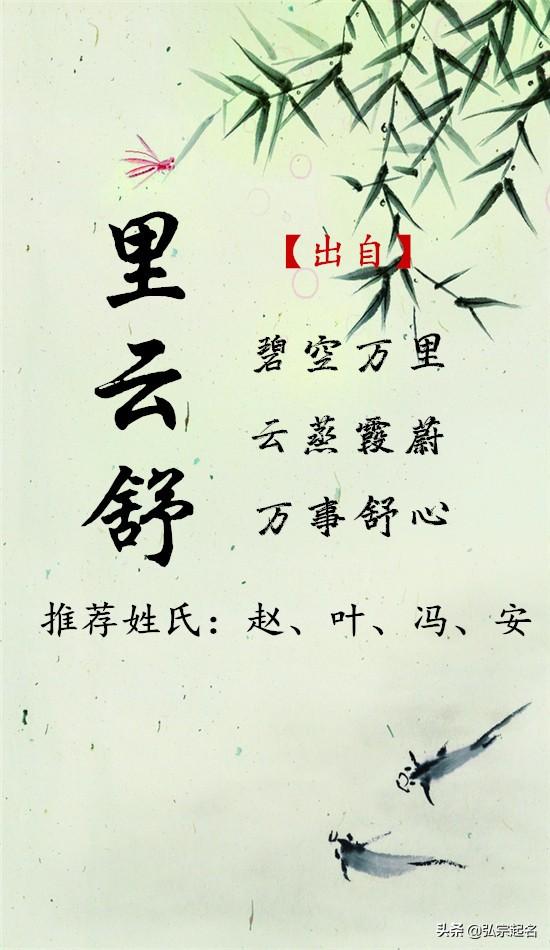 里云舒
【出自】
碧空万里
云蒸霞蔚
万事舒心
推荐姓氏：赵、叶、冯、安
头条 @弘宗起名